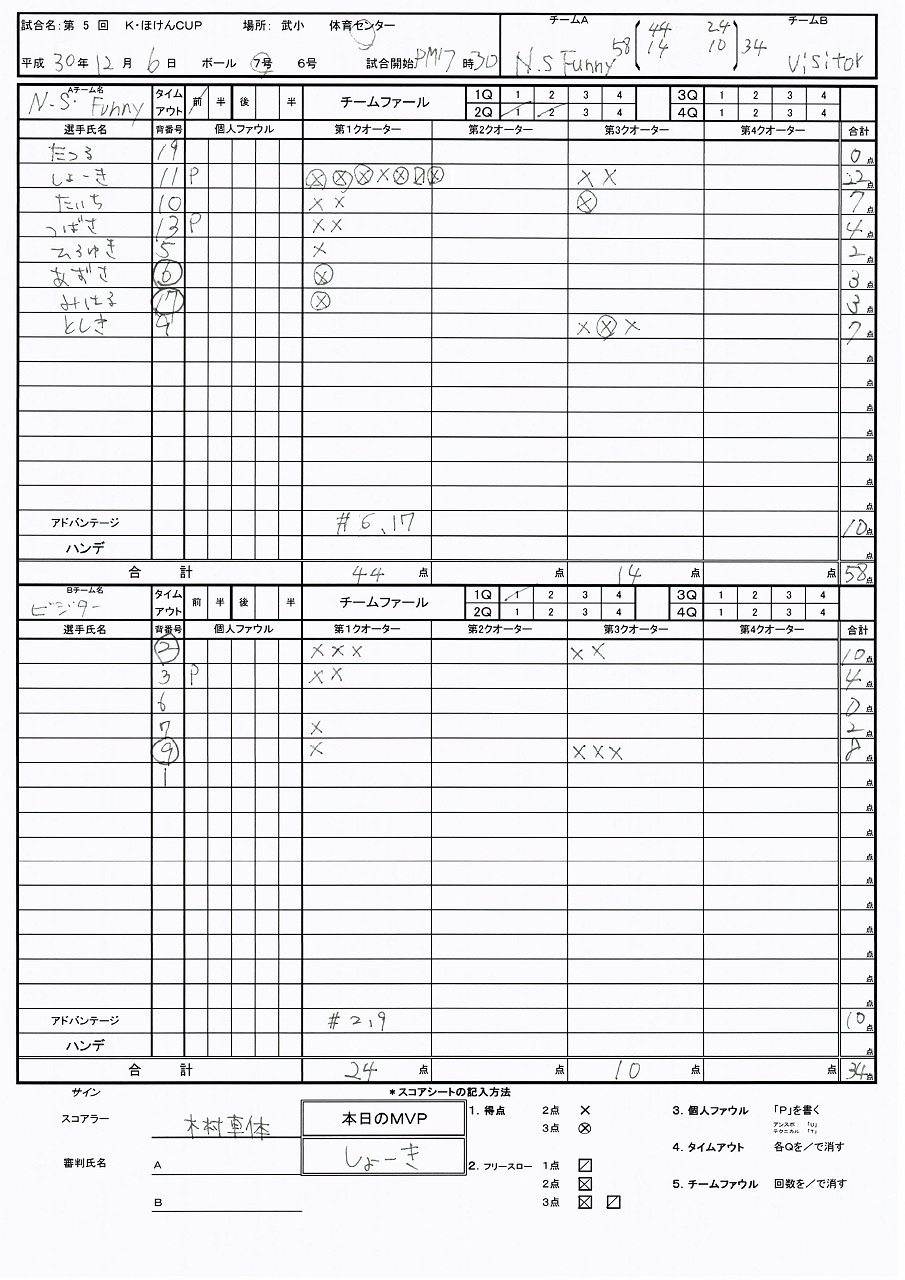 試合名:第 5 回 K・ほけんCUP 場所: 武小 体育センター
平成 30 年 12 月 6 日 ボール 7号 6号 試合開始 PM 7 時 30
チームA チームB
44 24
58 14 10 34
N.S Funny Visitor
Aチーム名 N.S. Funny
タイムアウト 前 半 後 半 チームファール
1Q 1 2 3 4 3Q 1 2 3 4
2Q 1 2 3 4 4Q 1 2 3 4
選手氏名 背番号 個人ファウル 第1クオーター 第2クオーター 第3クオーター 第4クオーター 合計
たつる 19 0点
しょーき 11 P ⊗ ⊗ ⊗ × ⊗ 〼 ⊗ × × 22点
たいち 10 × × ⊗ 7点
つばさ 13 P × × 4点
ひろゆき 5 × 2点
あずさ 6 ⊗ 3点
みはる 17 ⊗ 3点
としき 9 × ⊗ × 7点
点
点
点
点
点
点
点
アドバンテージ #6、17 10点
ハンデ 点
合 計 44点 点 14点 点 58点
Bチーム名 ビジター
タイムアウト 前 半 後 半 チームファール
1Q 1 2 3 4 3Q 1 2 3 4
2Q 1 2 3 4 4Q 1 2 3 4
選手氏名 背番号 個人ファウル 第1クオーター 第2クオーター 第3クオーター 第4クオーター 合計
2 × × × × × 10点
3 P × × 4点
6 0点
7 × 2点
9 × × × × 8点
1 点
点
点
点
点
点
点
点
点
点
アドバンテージ #2,9 10点
ハンデ 点
合 計 24点 点 10点 点 34点
サイン
スコアラー 木村車体
審判氏名 A
B
本日のMVP
しょーき
*スコアシートの記入方法
1. 得点 2点 ×
3点 ⊗
2. フリースロー 1点 〼
2点 ☒
3点 ☒ 〼
3. 個人ファウル 「P」を書く
アンスポ 「U」
テクニカル 「T」
4. タイムアウト 各Qを/で消す
5. チームファウル 回数を/で消す